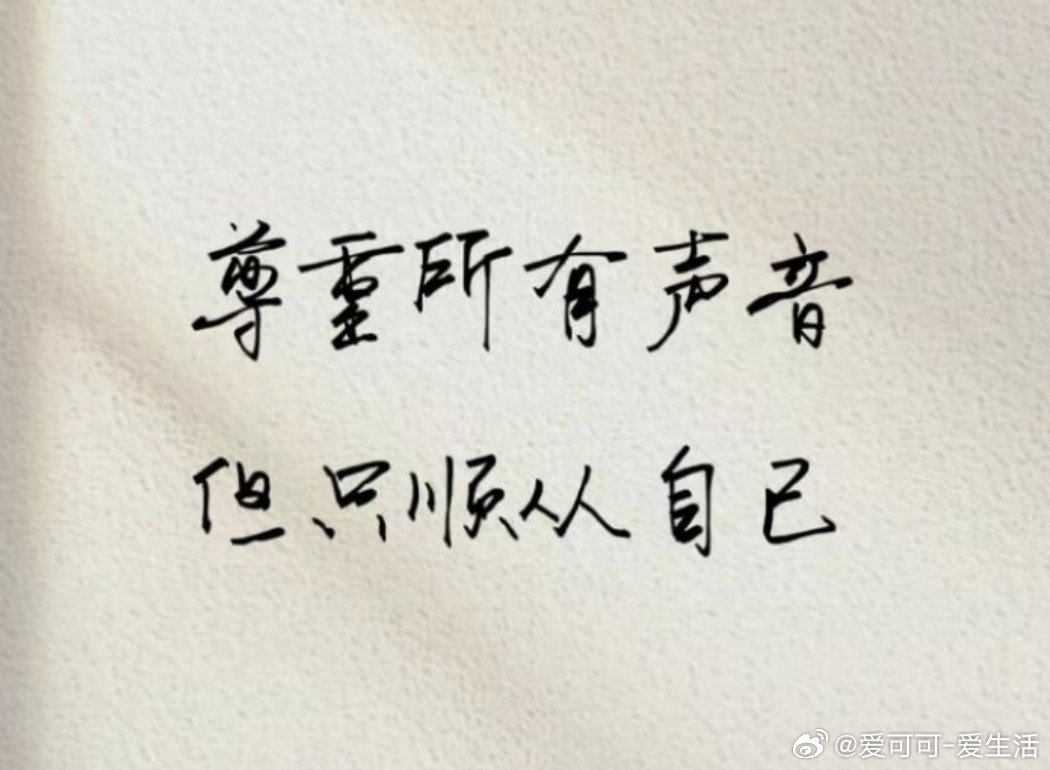 尊重所有声音
但只顺从自己
@爱可可-爱生活